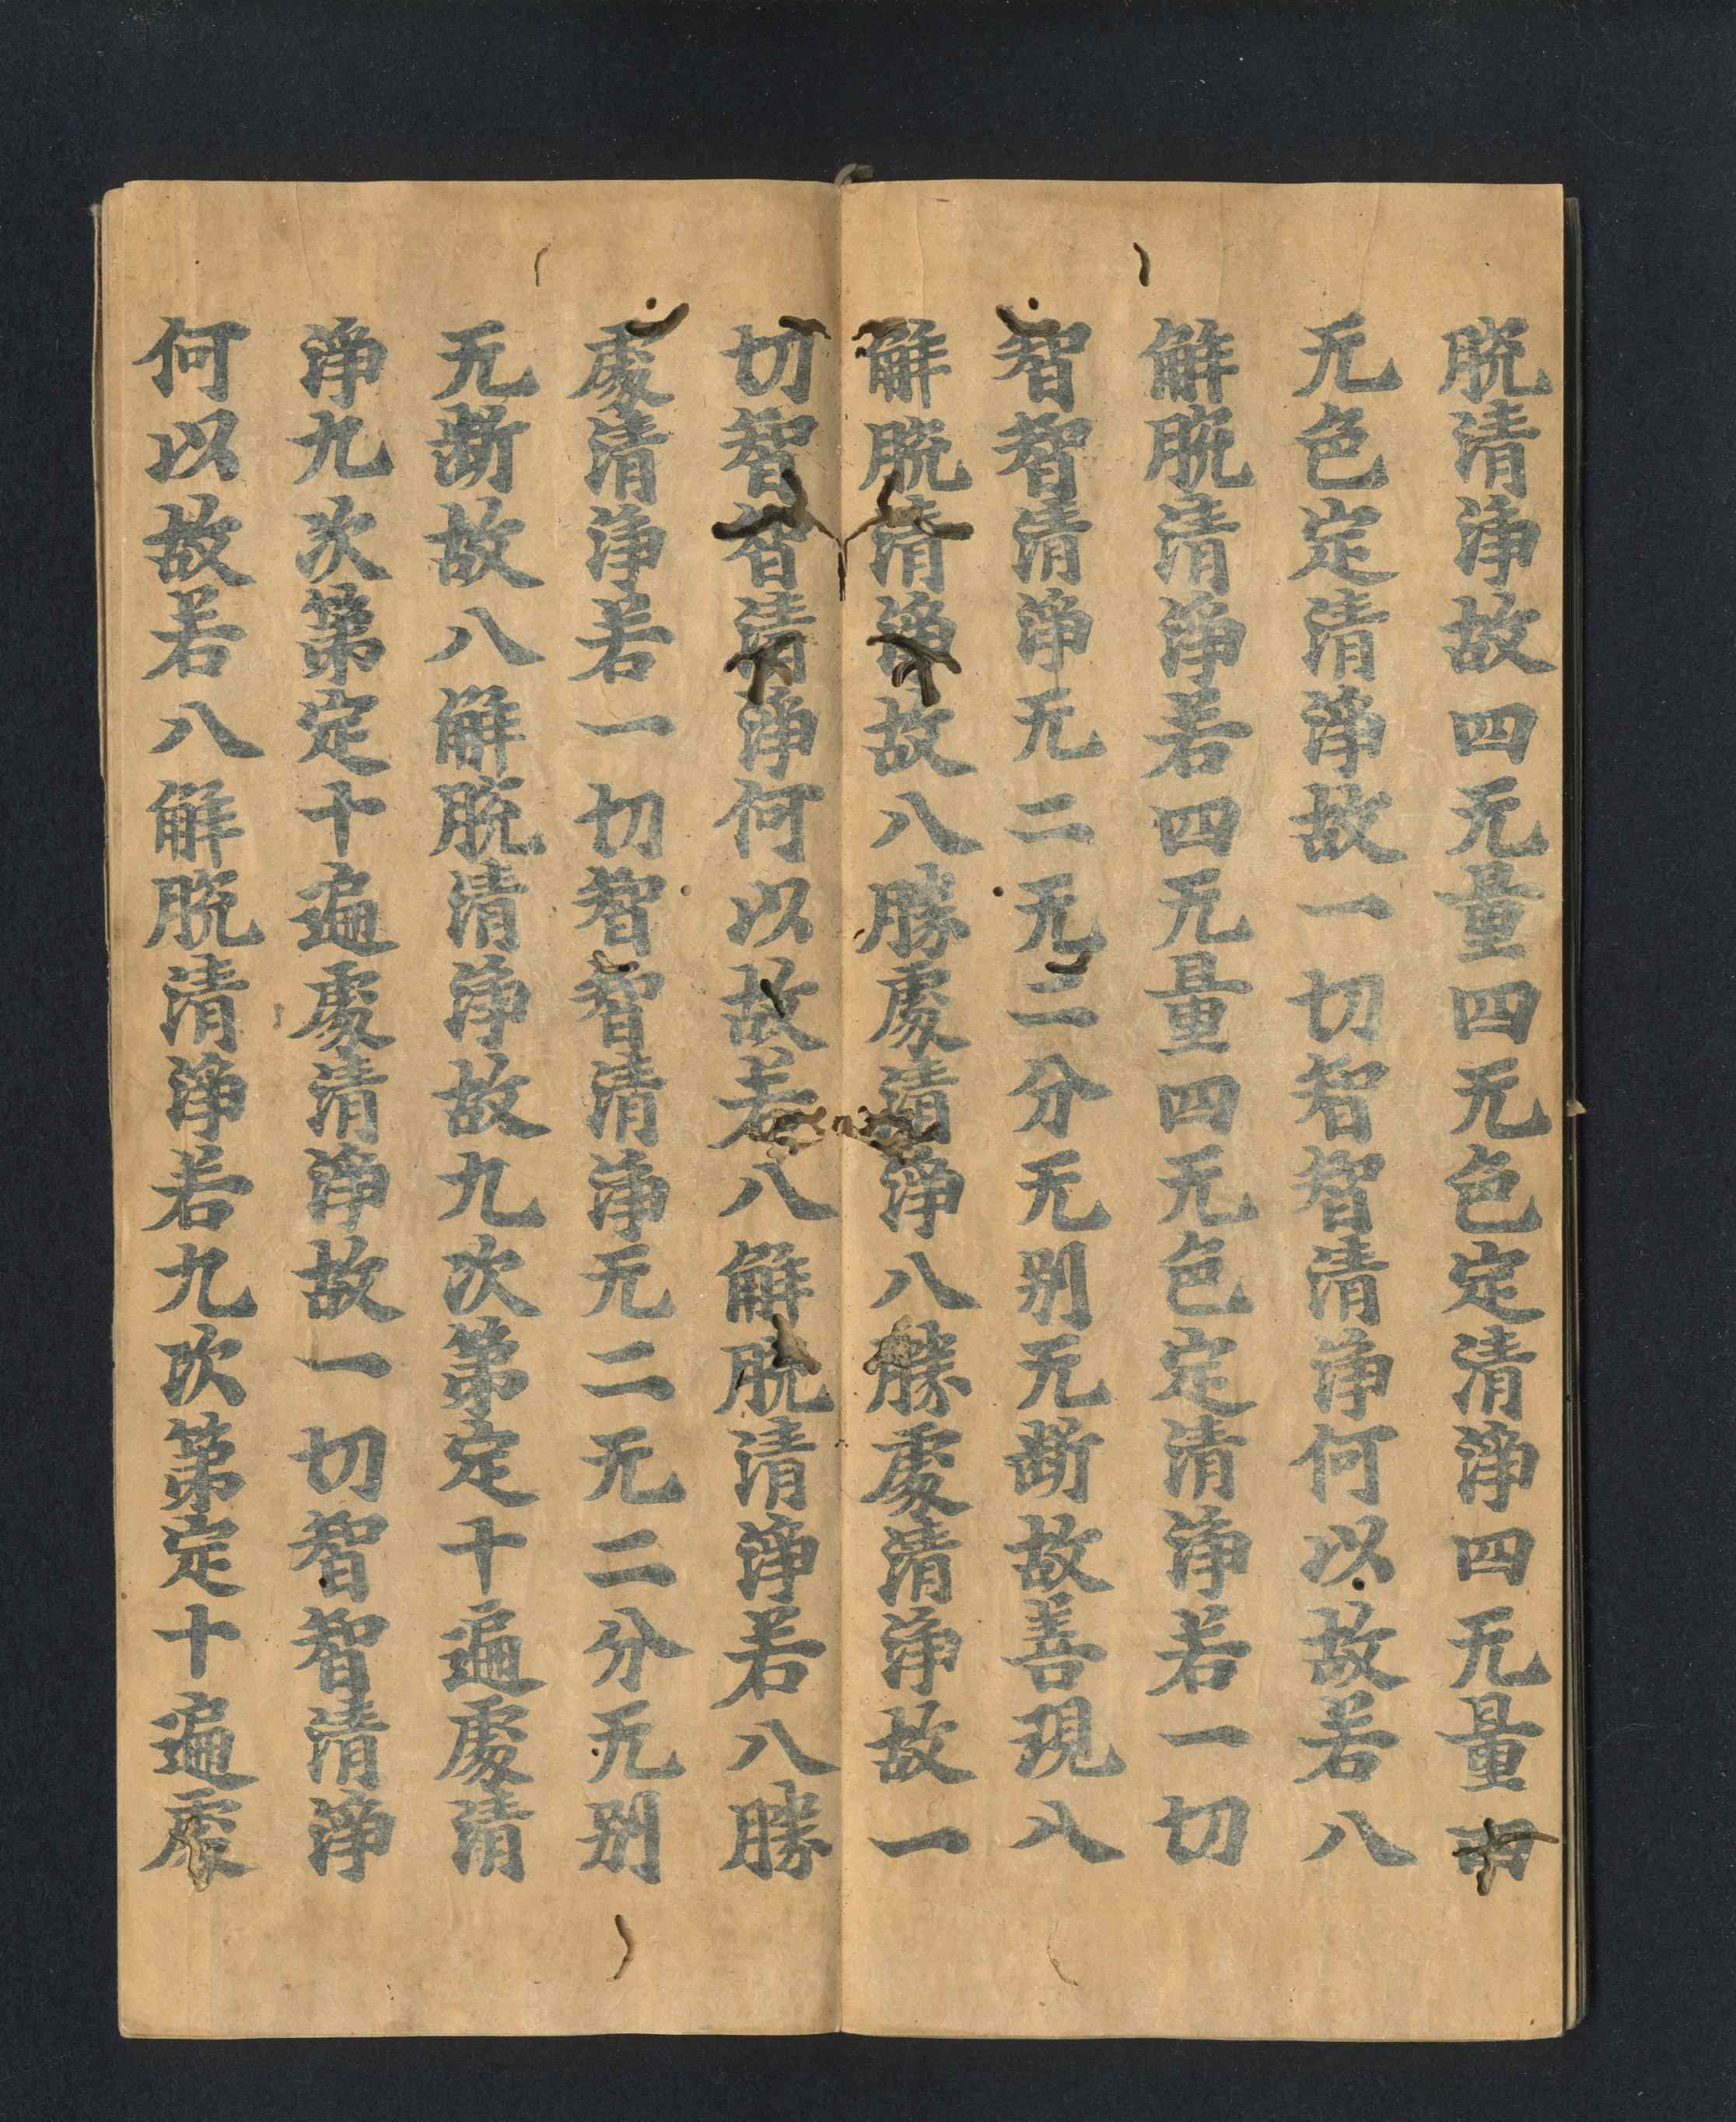 脱清淨故四无量四无色定清淨四无量四
无色定清淨故一切智智清淨何以故若八
解脱清淨若四无量四无色定清淨若一切
智智清淨无二无二分无别无断故善現八
解脱清淨故八勝處清淨八勝處清淨故一
切智智清淨何以故若八解脱清淨若八勝
處清淨若一切智智清淨无二无二分无别
无断故八解脱清淨故九次第定十遍處清
淨九次第定十遍處清淨故一切智智清淨
何以故若八解脱清淨若九次第定十遍處